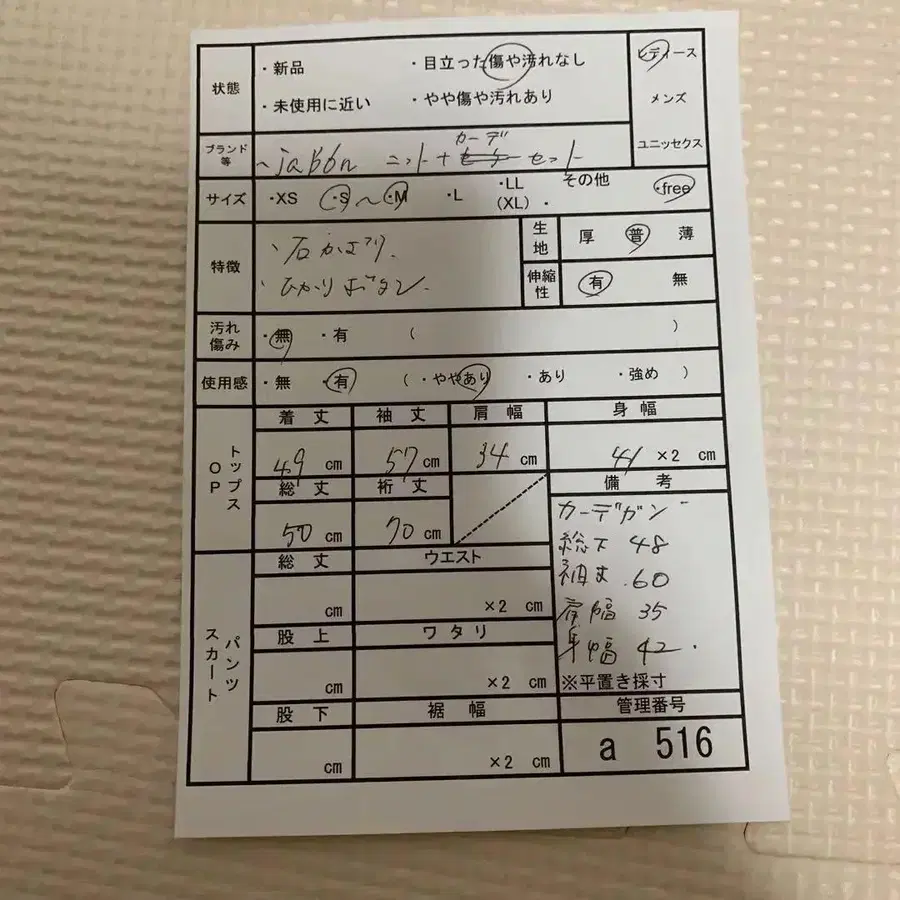 状態 ・新品 ・目立った傷や汚れなし レディース
・未使用に近い ・やや傷や汚れあり メンズ
ユニッセクス
ブランド等 ニット+カーデ セット
サイズ ・XS ・S～・M ・L ・LL (XL) その他 ・ ・free
特徴 ・石かざり.
・ひかりボタン.
生地 厚 普 薄
伸縮性 有 無
汚れ傷み ・無 ・有 ( )
使用感 ・無 ・有 ( ・ややあり ・あり ・強め )
トップス OP
着丈 袖丈 肩幅 身幅
49 cm 57 cm 34 cm 41 ×2 cm
総丈 裄丈 備考
50 cm 70 cm
カーデガン
総丈 48
袖丈 .60
肩幅 35
身幅 42.
※平置き採寸
パンツ スカート
総丈 ウエスト
cm ×2 cm
股上 ワタリ
cm ×2 cm
股下 裾幅
cm ×2 cm
管理番号
a 516